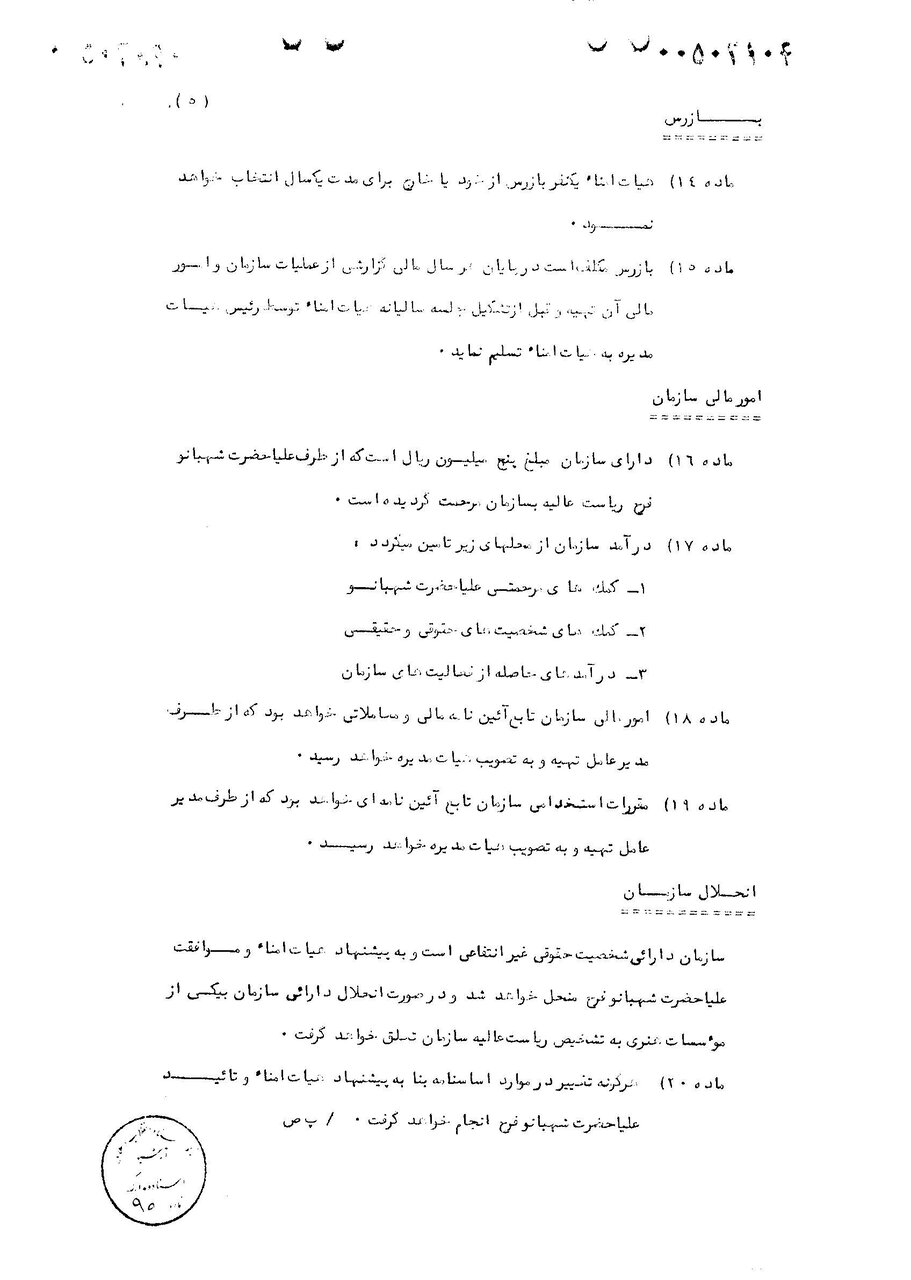 (۵)
بـــــازرس
ماده ۱٤) هیات امناء یکنفر بازرس از خود یا خارج برای مدت یکسال انتخاب خواهد
نمـــــود ۰
ماده ۱۵) بازرس مکلف است در پایان هر سال مالی گزارشی از عملیات سازمان و امور
مالی آن تهیه و قبل از تشکیل جلسه سالیانه هیات امناء توسط رئیس هیـــات
مدیره به هیات امناء تسلیم نماید ۰
امور مالی سازمان
ماده ۱٦) دارای سازمان مبلغ پنج میلیـون ریال است که از طرف علیاحضرت شهبانو
فرح ریاست عالیه بسازمان مرحمت گردیده است ۰
ماده ۱۷) درآمد سازمان از محلهای زیر تامین میگردد :
۱ـ کمک های مرحمتـی علیاحضرت شهبانــو
۲ـ کمک های شخصیت های حقوقی و حقیقــی
۳ـ درآمدهای حاصله از فعالیت های سازمان
ماده ۱۸) امور مالی سازمان تابع آئین نامه مالی و معاملاتی خواهد بود که از طـــرف
مدیرعامل تهیه و به تصویب هیات مدیره خواهد رسید ۰
ماده ۱۹) مقررات استخدامی سازمان تابع آئین نامه ای خواهد بود که از طرف مدیر
عامل تهیه و به تصویب هیات مدیره خواهد رسیـــد ۰
انحـلال سازمـــان
سازمان دارائی شخصیت حقوقی غیر انتفاعی است و به پیشنهاد هیات امناء و مـــوافقت
علیاحضرت شهبانو فرح منحل خواهد شد و در صورت انحلال دارائی سازمان بیکـی از
موسسات هنری به تشخیص ریاست عالیه سازمان تعلق خواهد گرفت ۰
ماده ۲۰) هرگونه تغییر در موارد اساسنامه بنا به پیشنهاد هیات امناء و تائیـــد
علیاحضرت شهبانو فرح انجام خواهد گرفت ۰ / پ ص
آرشیو
اسناد و مدارک
۹۵